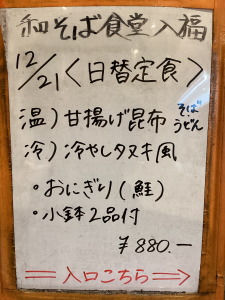 和そば食堂 入福
12/21 <日替定食>
温) 甘揚げ昆布 そば うどん
冷) 冷やしタヌキ風
・おにぎり(鮭)
・小鉢2品付
¥880.-
入口こちら